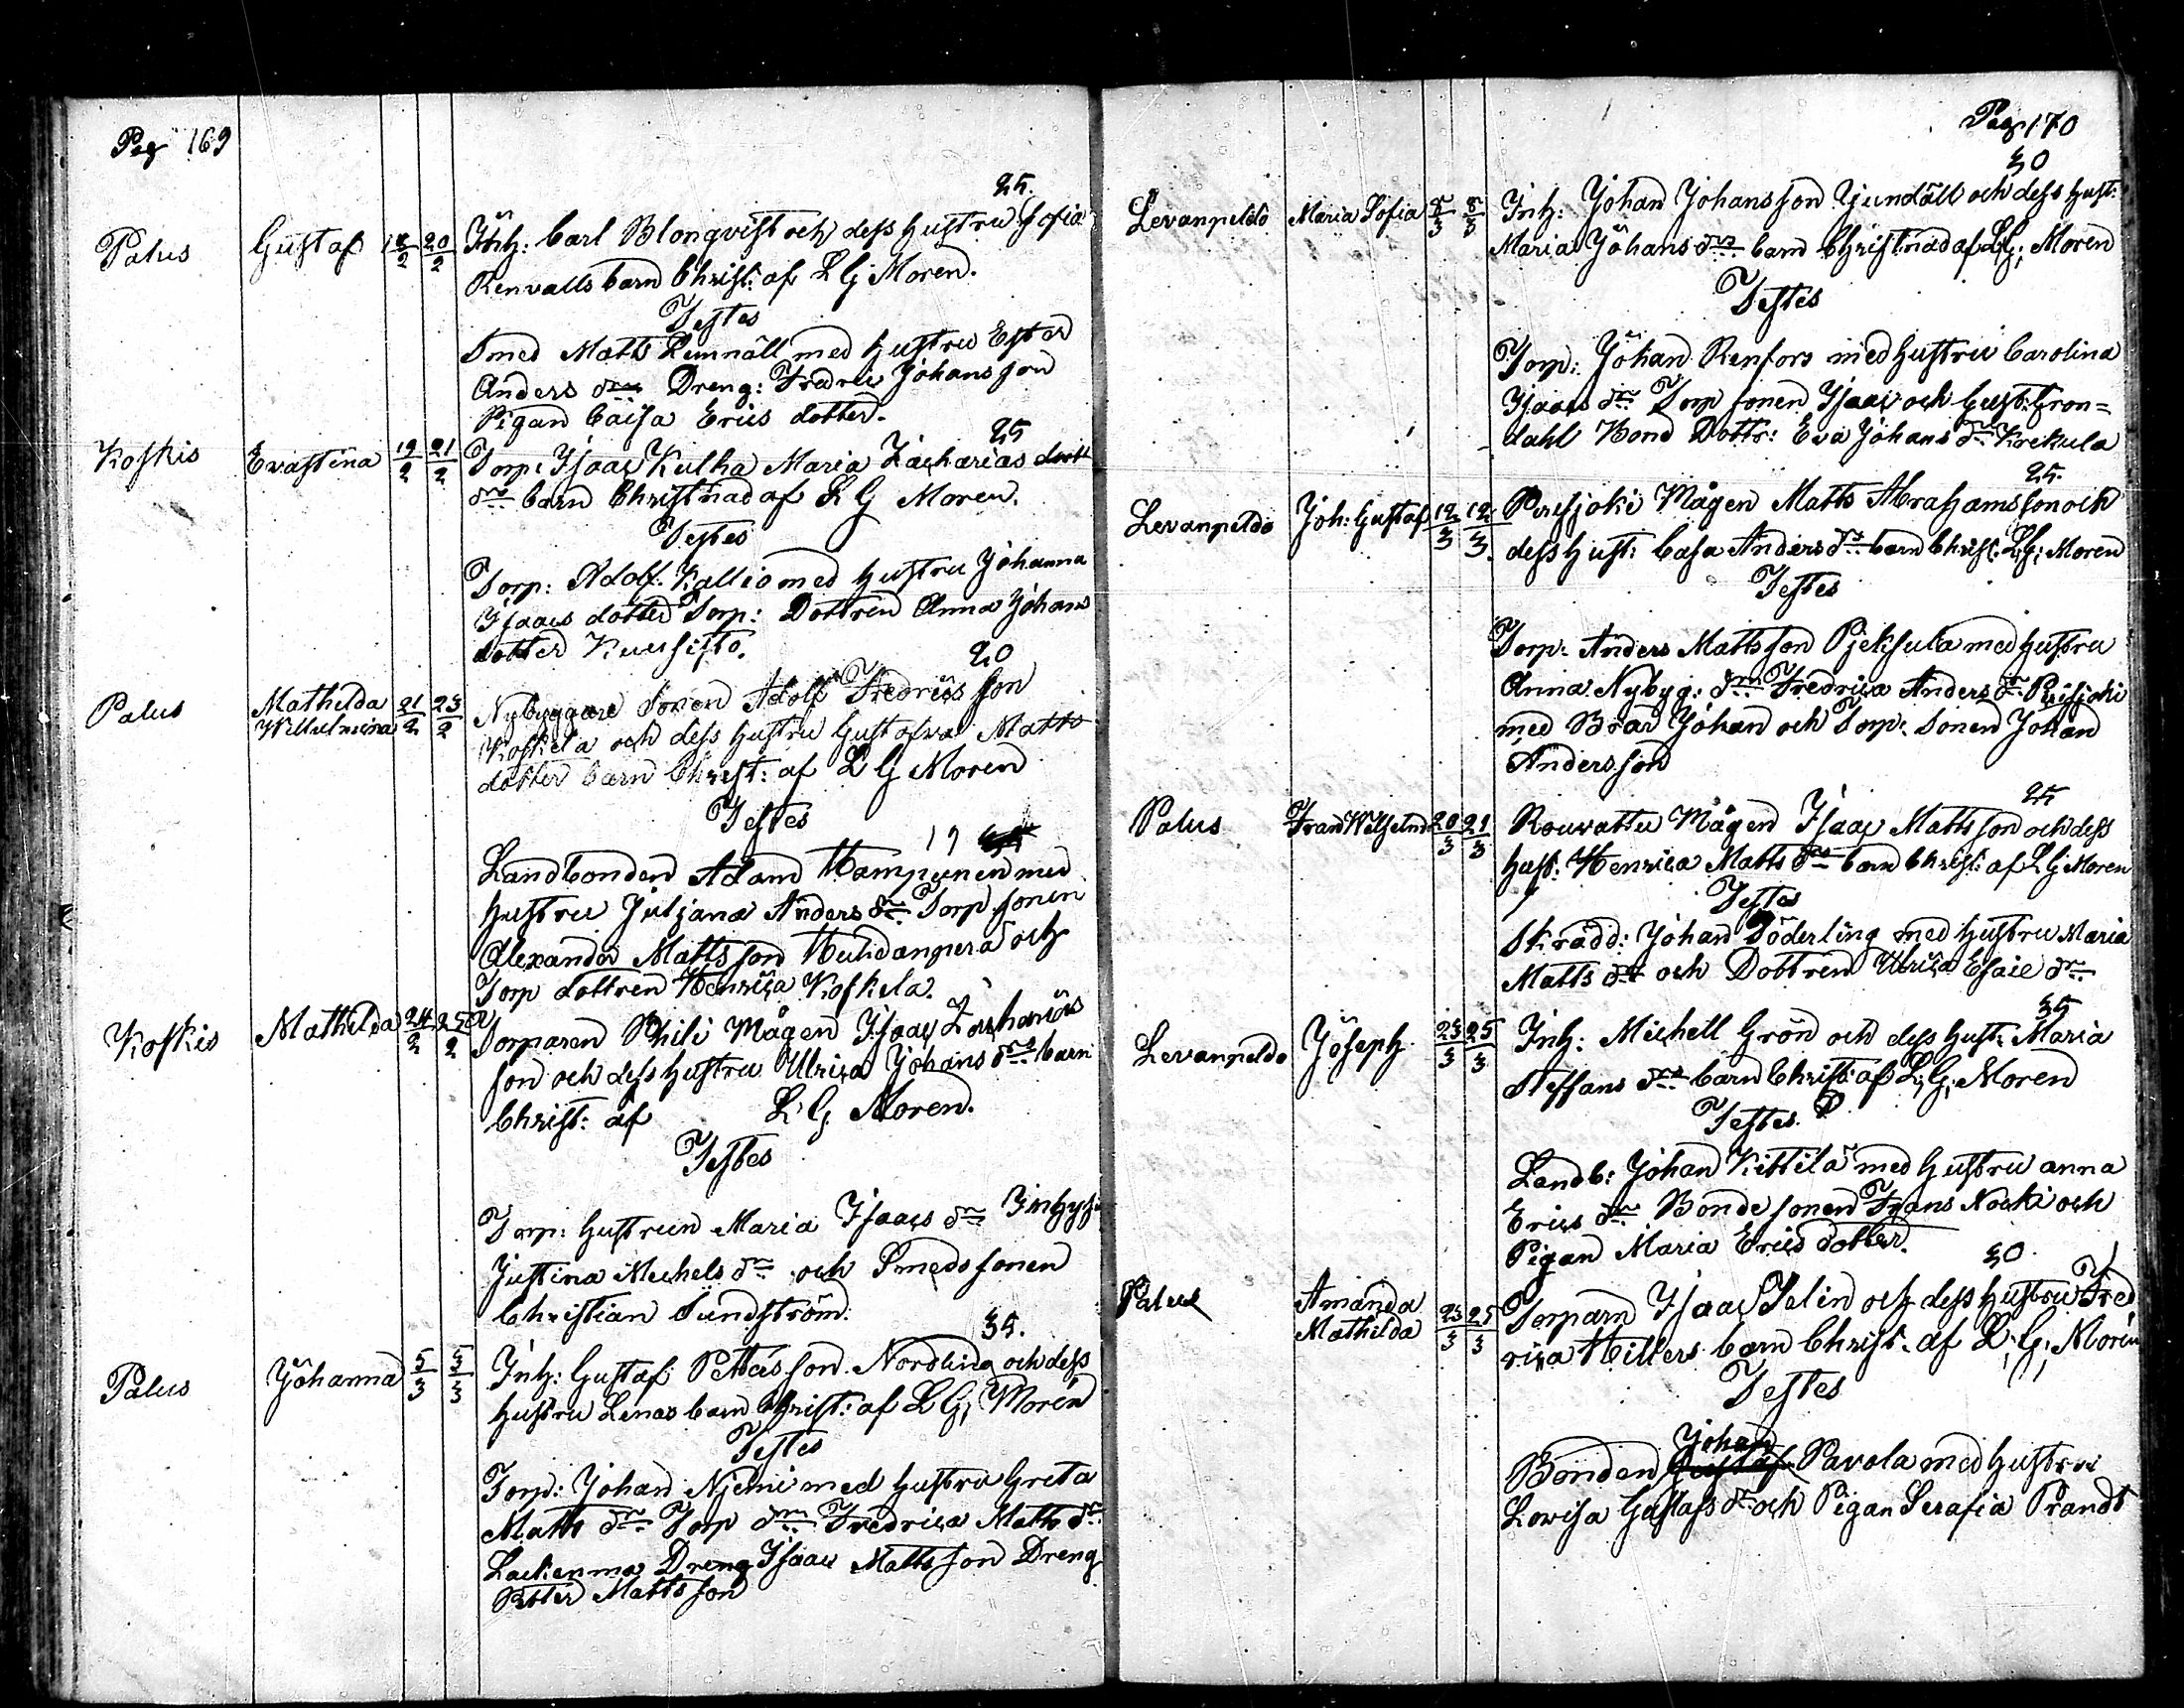 Pag 169
25.
Palus Gustaf 18/2 20/2 Inh: Carl Blonqvist och dess hustru Sofia
Renvalls barn Christ: af L G Moren.
Testes
Smed Matts Lunnäll med hustru Ester
Anders dr Dreng: Fredric Johansson
Pigan Caisa Erics dotter.
25
Koskis Evastina 19/2 21/2 Torp: Isaac Kulha Maria Zacharias
drs barn Christnad af L G Moren.
Testes
Torp: Adolf Kallio med hustru Johanna
Isaacs dotter Torp: Dottren Anna Johans
dotter Kuusisto.
20
Palus Mathilda Wilhelmina 21/2 23/2 Nybyggare Sonen Adolf Fredricsson
Koskela och dess hustru Gustafva Matts
dotter barn Christ: af L G Moren
Testes
19
Landbonden Adam Hampunen med
hustru Juljana Anders dr Torp sonen
Alexander Mattsson Huhdanpera och
Torp dottren Henrica Koskela.
Koskis Mathilda 24/2 25/2 Torparen Phili Mågen Isaac Zacharias
son och dess hustru Ulrica Johans drs barn
Christ: af L. G. Moren.
Testes
Torp: hustrun Maria Isaacs dr Inhys
Justina Michels dr och Smeds sonen
Christian Sundström.
35.
Palus Johanna 5/3 5/3 Inh: Gustaf Pettersson Nordling och dess
hustru Lenas barn Christ: af L G; Morén
Testes
Torp: Johan Njemi med hustru Greta
Matts dr Torp dr Fredrica Matts dr
Lackenma Dreng Isaac Mattsson Dreng
Petter Mattsson
Pag 170
30
Levanpeldo Maria Sofia 8/3 8/3 Inh: Johan Johansson Ljundäll och dess hust:
Maria Johans drs barn Christnad af L G; Moren
Testes
Torp: Johan Renfors med hustru Carolina
Isaacs dr Torp sonen Isaac och Gust: Gron=
dahl Bond Dottr: Eva Johans dr Krekula
25.
Levanpeldo Joh: Gustaf 12/3 12/3 Pusjoki Mågen Matts Abrahamsson och
dess hust: Casa Anders drs barn Christ: L G; Moren
Testes
Torp: Anders Mattsson Pjeksula med hustru
Anna Nybyg: dr Fredrica Anders dr Pusjoki
med Bror Johan och Torp: Sonen Johan
Andersson
25
Palus Frans Wilhelm 20/3 21/3 Rouvattu Mågen Isaac Mattsson och dess
hust: Henrica Matts drs barn Christ: af L G Moren
Testes
Skrädd: Johan Söderling med hustru Maria
Matts dr och Dottren Ulrica Esaie dr
35
Levanpeldo Joseph 23/3 25/3 Inh: Michell Grön och dess hust: Maria
Steffans drs barn Christ: af L; G; Moren
Testes
Landb: Johan Kittilä med hustru anna
Erics dr Bonde sonen Frans Nocki och
Pigan Maria Erics dotter.
30
Palus Amanda Mathilda 23/3 25/3 Torparn Isaac Selin och dess hustru Fred
rica Hillers barn Christ. af L; G; Morén
Testes
Johan
Bonden Gustaf Pavola med hustru
Lowisa Gustafs dr och Pigan Serafia Prandt